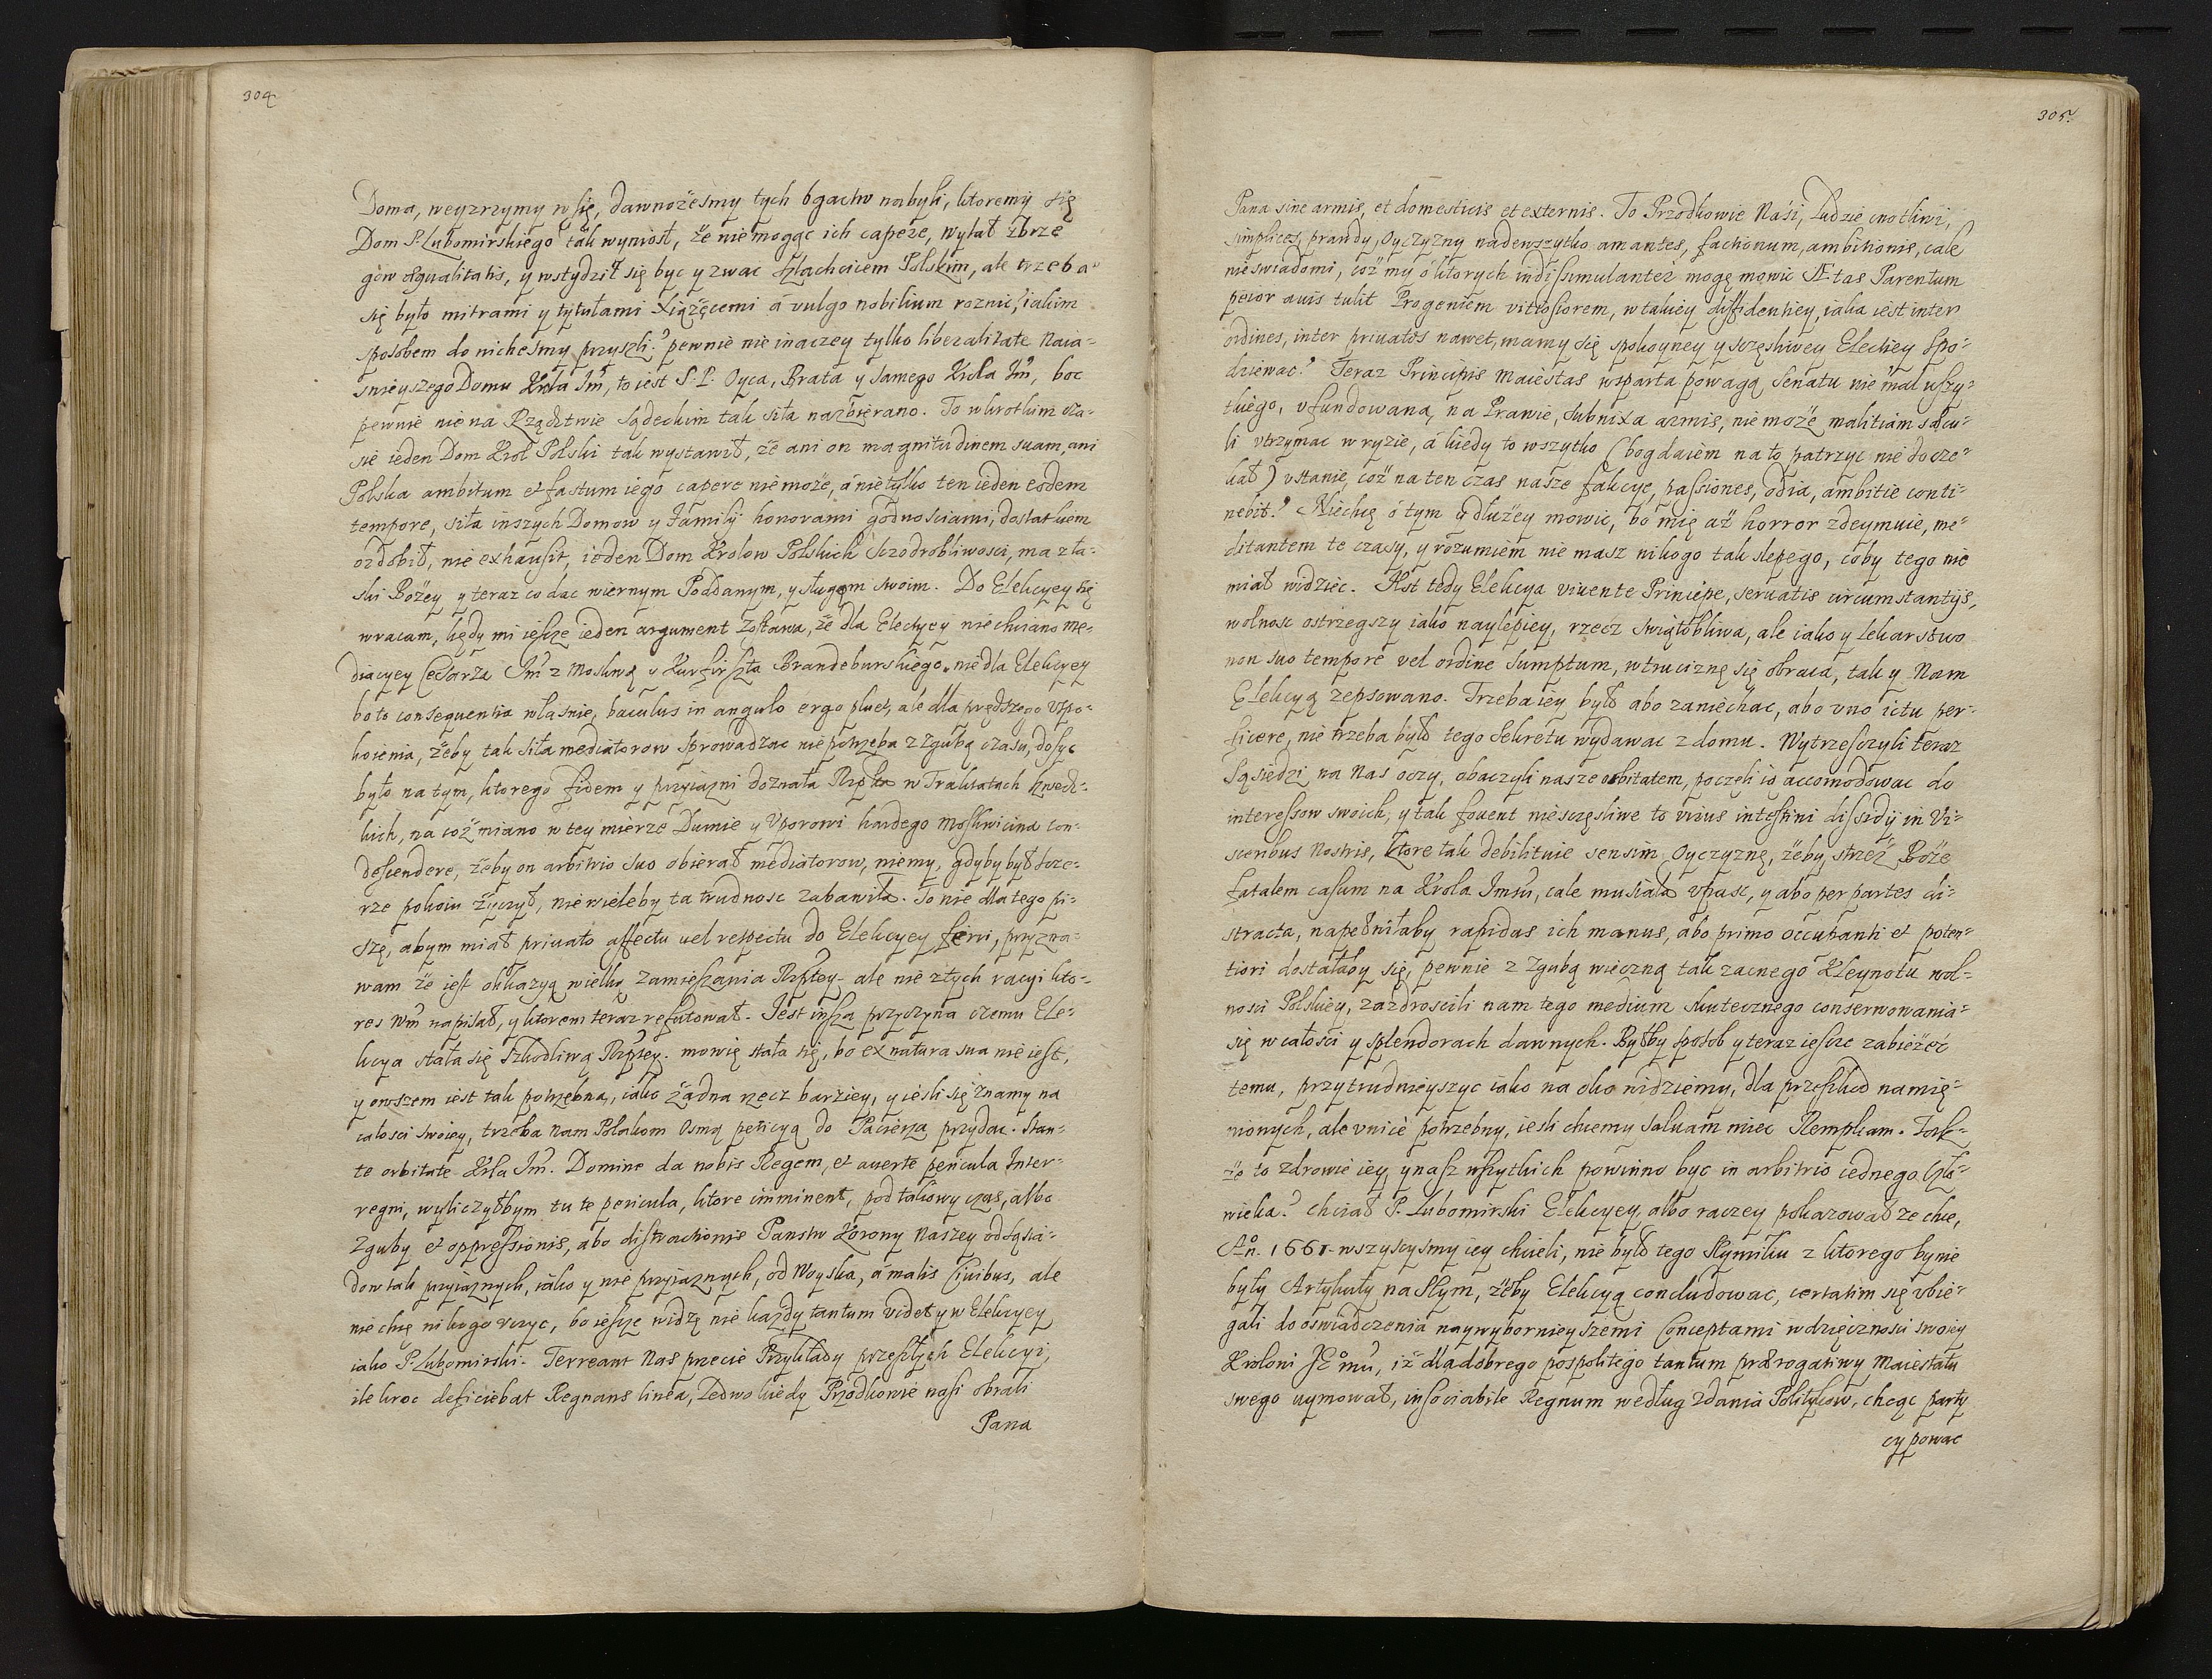 304
Doma, weyzrzymy w się, dawnożesmy tych bgactw nabyli, ktoremi się
Dom P. Lubomirskiego tak wyniosł, że nie mogąc ich capere, wylał z brze
gow æqualitatis, y wstydził się byc y zwac Szlachcicem Polskim, ale trzeba
się było mitrami y tytułami Xiążęcemi á vulgo nobilium roznic, iakim
sposobem do nichesmy przyszli? pewnie nie inaczey tylko liberalitate Naia-
snieyszego Domu Krola Jm̃, to iest S. P. Oyca, Brata y samego Krola Jm̃, boc
pewnie nie na Rządztwie Sądeckim tak siła nazbierano. To w krotkim cza-
sie ieden Dom Krol Polski tak wystawił, że ani on magnitudinem suam, ani
Polska ambitum et fastum iego capere nie może, á nie tylko ten ieden eodem
tempore, siła inszych Domow y Familij honorami godnosciami, dostatkiem
ozdobił, nie exhausit, ieden Dom Krolow Polskich sczodrobliwosci, ma z ła-
ski Bożey y teraz co dac wiernym Poddanym, y sługom swoim. Do Elekcyey się
wracam, kędy mi iescze ieden argument zostawa, że dla Elekcyey nie chciano me-
diacyey Cesarza Jm̃ z Moskwą y Kurfirszta Brandeburskiego. nie dla Elekcyey
bo to consequentia własnie, baculus in angulo ergo pluet, ale dla prędszego vspo-
koienia, żeby tak siła mediatorow sprowadzac nie potrzeba z zgubą czasu, dosyc
było na tym, ktorego fidem y przyiazni doznała Rzpłta w Traktatach Szwedz-
kich, na coż miano w tey mierze Dumie y Vporowi hardego Moskwicina con-
descendere, żeby on arbitrio suo obierał mediatorow, nie my, gdyby był scze-
rze pokoiu życzył, nie wieleby ta trudnosc zabawiła. To nie dla tego pi-
szę, abym miał priuato affectu uel respectu do Elekcyey ferri, przyzna-
wam że iest okkazyą wielką zamieszania Rzptey. ale nie z tych racyi kto-
res Wm̃ napisał, y ktorem teraz refutował. Jest insza przyczyna czemu Ele-
kcya stała się szkodliwą Rzptey. mowię stała się, bo ex natura sua nie iest,
y owszem iest tak potrzebna, iako żadna rzecz barziey, y iesli się znamy na
całosci swoiey, trzeba nam Polakom osmą peticyą do Pacierza przydac. stan-
te orbitate Krla Jm̃. Domine da nobis Regem, et auerte pericula Inter-
regni, wyliczyłbym tu te pericula, ktore imminent, pod takowy czas, albo
zguby et oppressionis, abo distractionis Panstw Korony Naszey od Sąsia-
dow tak przyiaznych, iako y nie przyiaznych, od Woyska, á malis Ciuibus, ale
nie chcę nikogo vczyc, bo iescze widzę nie każdy tantum videt y w Elekcyey
iako P. Lubomirski. Terreant Nas przecie Przykłady przeszłych Elekcyi,
ile kroc deficiebat Regnans linea, Ledwo kiedy Przodkowie nasi obrali
Pana
305.
Pana sine armis, et domesticis et externis. To Przodkowie Nasi, ludzie cnotliwi,
simplices, prawdy, Oyczyzny nadewszytko amantes, factionum, ambitionis, cale
nieswiadomi, coż my o ktorych indissimulanter mogę mowic Ætas Parentum
peior auis tulit Progeniem vitiosiorem, w takiey diffidentiey, iaka iest inter
ordines, inter priuatos nawet, mamy się spokoyney y sczęsliwey Elekciey spo-
dziewac? Teraz Principis Maiestas wsparta powagą Senatu niemal wszy-
tkiego, vfundowana, na Prawie, subnixa armis, nie może malitiam sæcu-
li vtrzymac w ryzie, á kiedy to wszytko (bogdaiem na to patrzyc nie docze-
kał) vstanie, coż na ten czas nasze fakcye, passiones, odia, ambitie conti-
nebit? Niechcę o tym y dłużey mowic, bo mię aż horror zdeymuie, me-
ditantem te czasy, y rozumiem nie masz nikogo tak slepego, coby tego nie
miał widziec. Ast tedy Elekcya viuente Principe, seruatis circumstantijs,
wolnosc ostrzegszy iako naylepiey, rzecz swiątobliwa, ale iako y lekarstwo
non suo tempore vel ordine sumptum, w truciznę się obraca, tak y Nam
Elekcyą zepsowano. Trzeba iey było abo zaniechac, abo vno ictu per-
ficere, nie trzeba było tego sekretu wydawac z domu. Wytrzesczyli teraz
Sąsiedzi na Nas oczy, obaczyli nasze orbitatem, poczęli ią accomodowac do
interessow swoich, y tak fouent niesczęsliwe to virus intestini dissidij in Vi-
sceribus Nostris, ktore tak debilituie sensim Oyczyznę, żeby, strzeż Boże
fatalem casum na Krola Jmsci, cale musiała vpasc, y abo per partes di-
stracta, napełniłaby rapidas ich manus, abo primo occupanti et poten-
tiori dostałaby się, pewnie z zgubą wieczną tak zacnego Kleynotu wol-
nosci Polskiey, zazdroscili nam tego medium skutecznego conserwowania-
się w całosci y splendorach dawnych. Byłby sposob y teraz iescze zabieżec
temu, przytrudnieyszyc iako na oko widziemy, dla przeszkod namię-
nionych, ale vnice potrzebny, iesli chcemy saluam miec Rempłcam. Toż-
że to zdrowie iey, y nasz wszytkich powinno byc in arbitrio iednego Czło-
wieka? chciał P. Lubomirski Elekcyey, albo raczey pokazował ze chce,
Aõ. 1661. wszyscysmy iey chcieli, nie było tego Seymiku z ktorego by nie
były Artykuły na Seym, żeby Elekcyą concludowac, certatim się vbie-
gali do oswiadczenia naywybornieyszemi Conceptami wdzięcznosci swoiey
Krolowi JE°mu, iż dla dobrego pospolitego tantum prærogatiwy Maiestatu
swego uymował, insociabile Regnum według zdania Politykow, chcąc party
cypowac